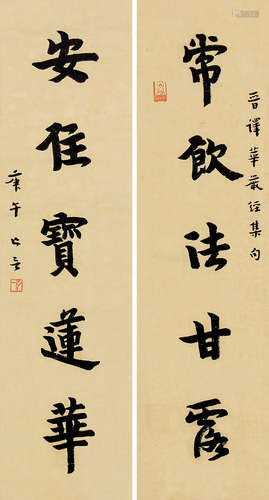 晉譯華嚴經集句
常飲法甘露
安住寶蓮華
庚午